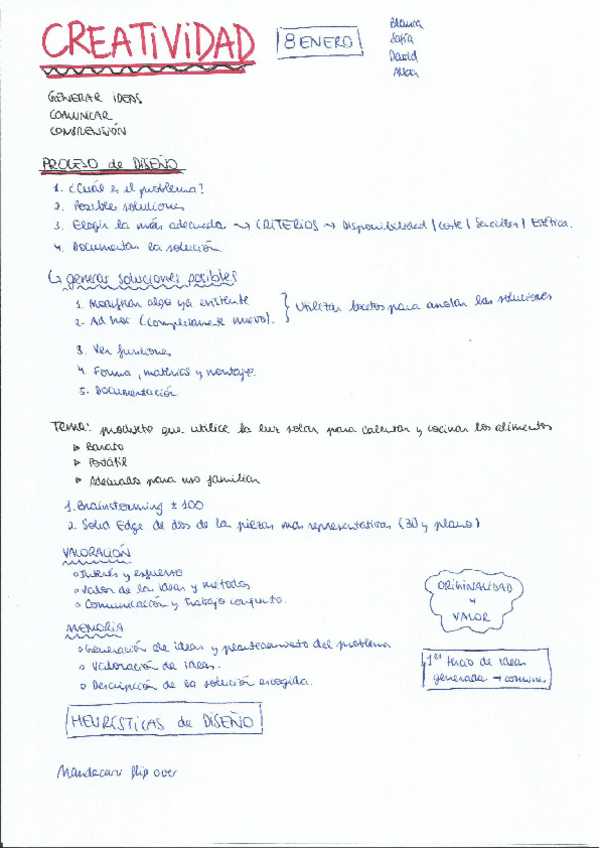 CREATIVIDAD
8 ENERO
Blanca
Sofía
David
Alba
GENERAR IDEAS
COMUNICAR
COMPRENSIÓN
PROCESO de DISEÑO
1. ¿Cuál es el problema?
2. Posibles soluciones
3. Elegir la más adecuada → CRITERIOS → Disponibilidad / Coste / Sencillez / Estética.
4. Documentar la solución.
↳ generar soluciones posibles
1. Modificar algo ya existente
2. Ad hoc (completamente nuevo).
} Utilizar bocetos para anotar las soluciones
3. Ver funciones
4. Forma, materias y montaje.
5. Documentación
Tema: producto que utilice la luz solar para calentar y cocinar los alimentos
▷ Barato
▷ Portátil
▷ Adecuado para uso familiar
1. Brainstorming ± 100
2. Solid Edge de dos de las piezas más representativas (3D y plano)
VALORACIÓN
o Interés y esfuerzo
o Valor de las ideas y métodos
o Comunicación y trabajo conjunto.
ORIGINALIDAD
y
VALOR
MEMORIA
o Generación de ideas y planteamiento del problema
o Valoración de ideas.
o Descripción de la solución escogida.
1er tercio de ideas
generada → comunes
HEURÍSTICAS de DISEÑO
flip over